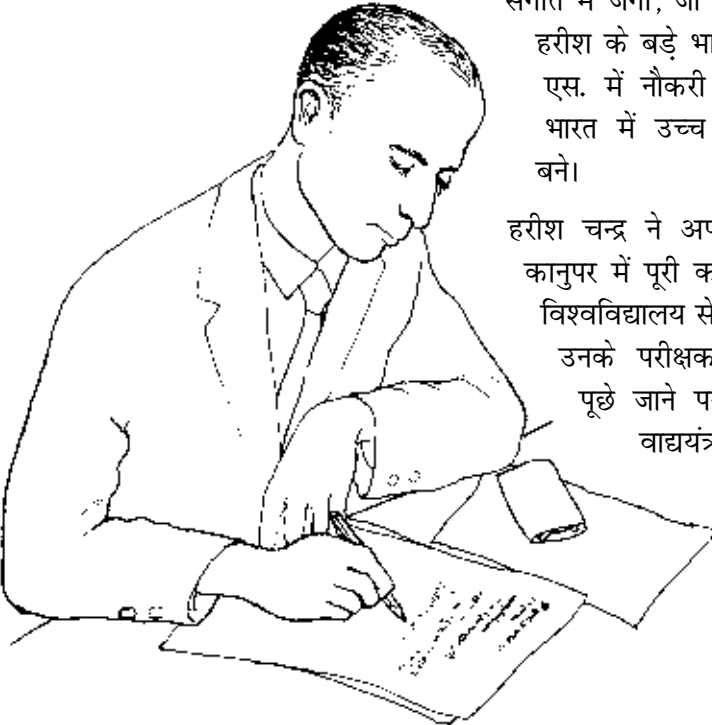 संगीत में जगी, जो
हरीश के बड़े भा
एस. में नौकरी
भारत में उच्च
बने।
हरीश चन्द्र ने अप
कानुपर में पूरी क
विश्वविद्यालय से
उनके परीक्षक
पूछे जाने प
वाद्ययंत्र